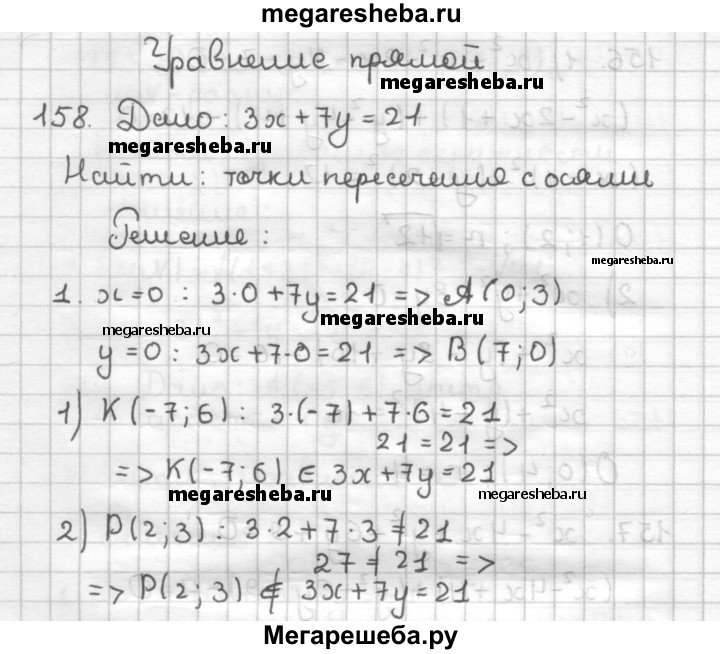 megaresheba.ru
Уравнение прямой
megaresheba.ru
158. Дано: 3x + 7y = 21
megaresheba.ru
Найти: точки пересечения с осями
Решение:
megaresheba.ru
1. x=0 : 3·0+7y=21 => A(0;3)
megaresheba.ru
megaresheba.ru
y=0 : 3x+7·0=21 => B(7;0)
1) K(-7;6) : 3·(-7)+7·6=21
21=21 =>
=> K(-7;6) ∈ 3x+7y=21
megaresheba.ru
megaresheba.ru
2) P(2;3) : 3·2+7·3≠21
27≠21 =>
=> P(2;3) ∉ 3x+7y=21
Мегарешеба.ру